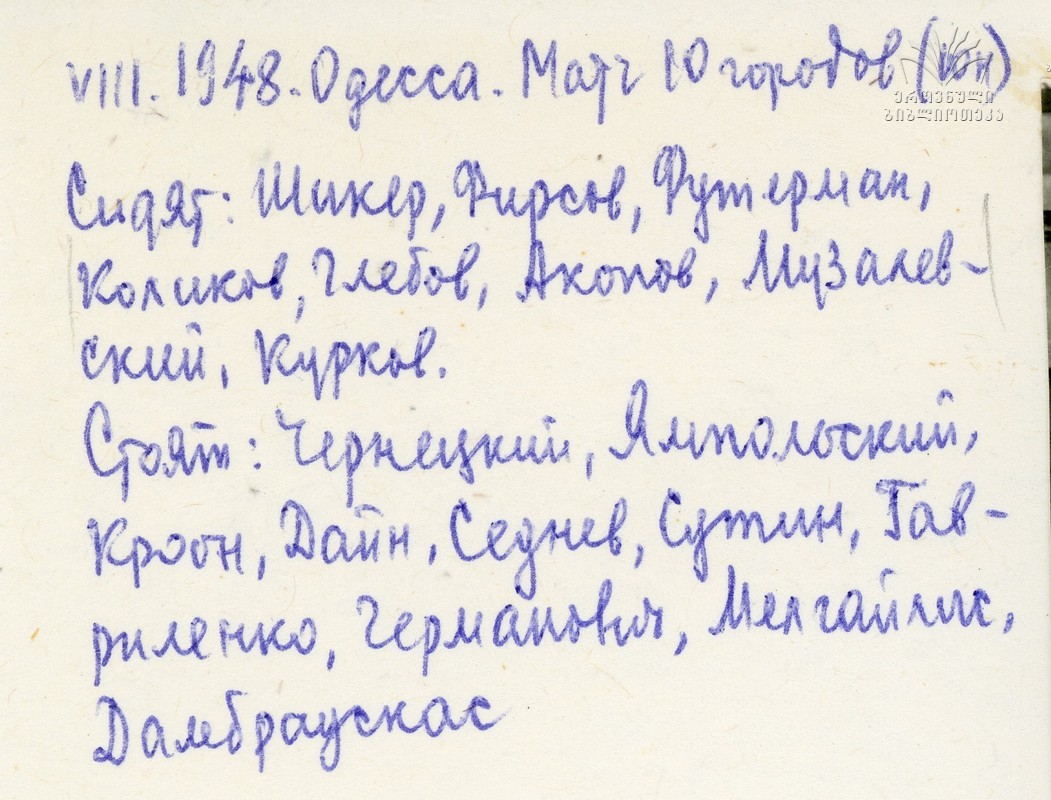 VIII. 1948. Одесса. Матч 10 городов (юн)
ეროვნული
ბიბლიოთეკა
Сидят: Шикер, Фирсов, Футерман,
Коликов, Глебов, Акопов, Музалев-
ский, Курков.
Стоят: Чернецкий, Ямпольский,
Кроон, Дайн, Седнев, Сутин, Гав-
риленко, Германович, Мелгайлис,
Дамбраускас